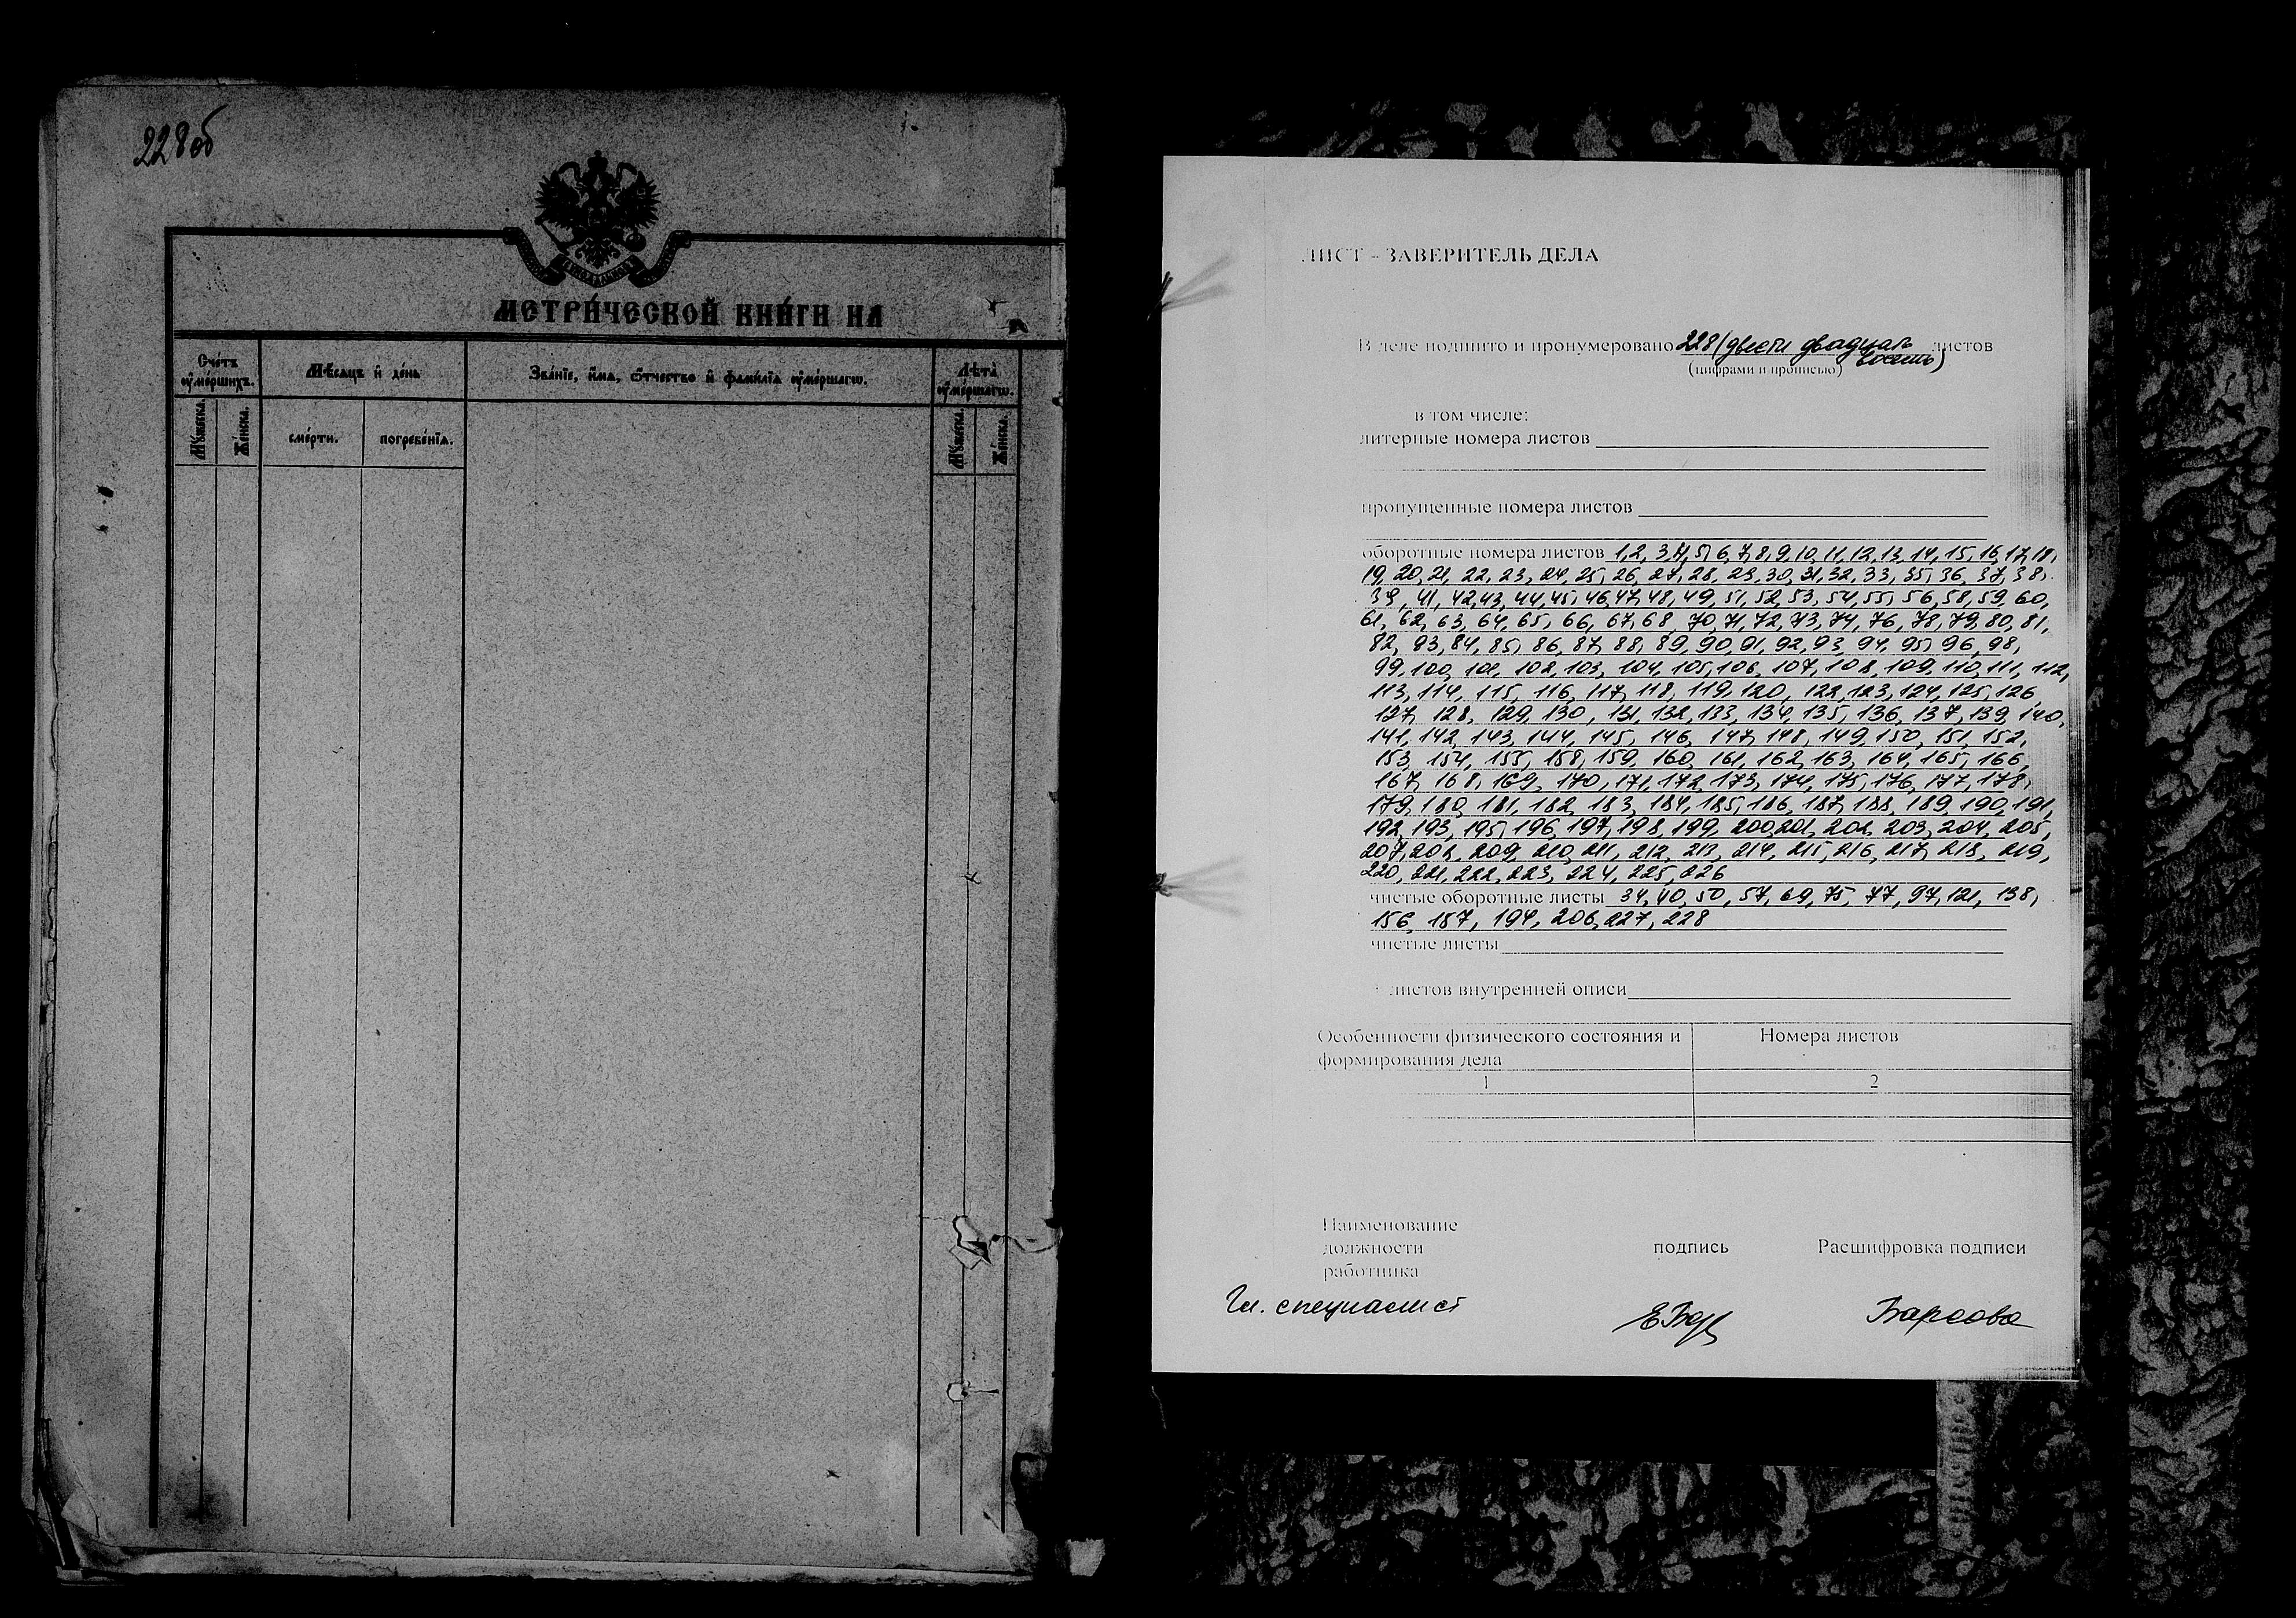 228об
МЕТРИ́ЧЕСКОЙ КНИ́ГИ НА
Сче́тъ оу҆ме́ршихъ.
Мѣ́сяцъ и҆ де́нь
Зва́нїе, и҆́мѧ, ѻ҆́тчество и҆ фами́лїѧ оу҆ме́ршагѡ.
Лѣ́та оу҆ме́ршагѡ.
Мꙋ́жеска.
Же́нска.
сме́рти.
погребе́нїѧ.
Мꙋ́жеска.
Же́нска.
ЛИСТ - ЗАВЕРИТЕЛЬ ДЕЛА
В деле подшито и пронумеровано 228 (двести двадцать восемь) листов
(цифрами и прописью)
в том числе:
литерные номера листов
пропущенные номера листов
оборотные номера листов 1,2,3,4,5,6,7,8,9,10,11,12,13,14,15,16,17,18,
19,20,21,22,23,24,25,26,27,28,29,30,31,32,33,35,36,37,38,
39,41,42,43,44,45,46,47,48,49,51,52,53,54,55,56,58,59,60,
61,62,63,64,65,66,67,68,70,71,72,73,74,76,78,79,80,81,
82,83,84,85,86,87,88,89,90,91,92,93,94,95,96,98,
99,100,101,102,103,104,105,106,107,108,109,110,111,112,
113,114,115,116,117,118,119,120,122,123,124,125,126
127,128,129,130,131,132,133,134,135,136,137,139,140,
141,142,143,144,145,146,147,148,149,150,151,152,
153,154,155,158,159,160,161,162,163,164,165,166,
167,168,169,170,171,172,173,174,175,176,177,178,
179,180,181,182,183,184,185,186,187,188,189,190,191,
192,193,195,196,197,198,199,200,201,202,203,204,205,
207,208,209,210,211,212,213,214,215,216,217,218,219,
220,221,222,223,224,225,226
чистые оборотные листы 34,40,50,57,69,75,77,97,121,138,
156,157,194,206,227,228
чистые листы
+ листов внутренней описи
Особенности физического состояния и формирования дела
Номера листов
1
2
Наименование
должности
работника
подпись
Расшифровка подписи
Гл. специалист
Барсова